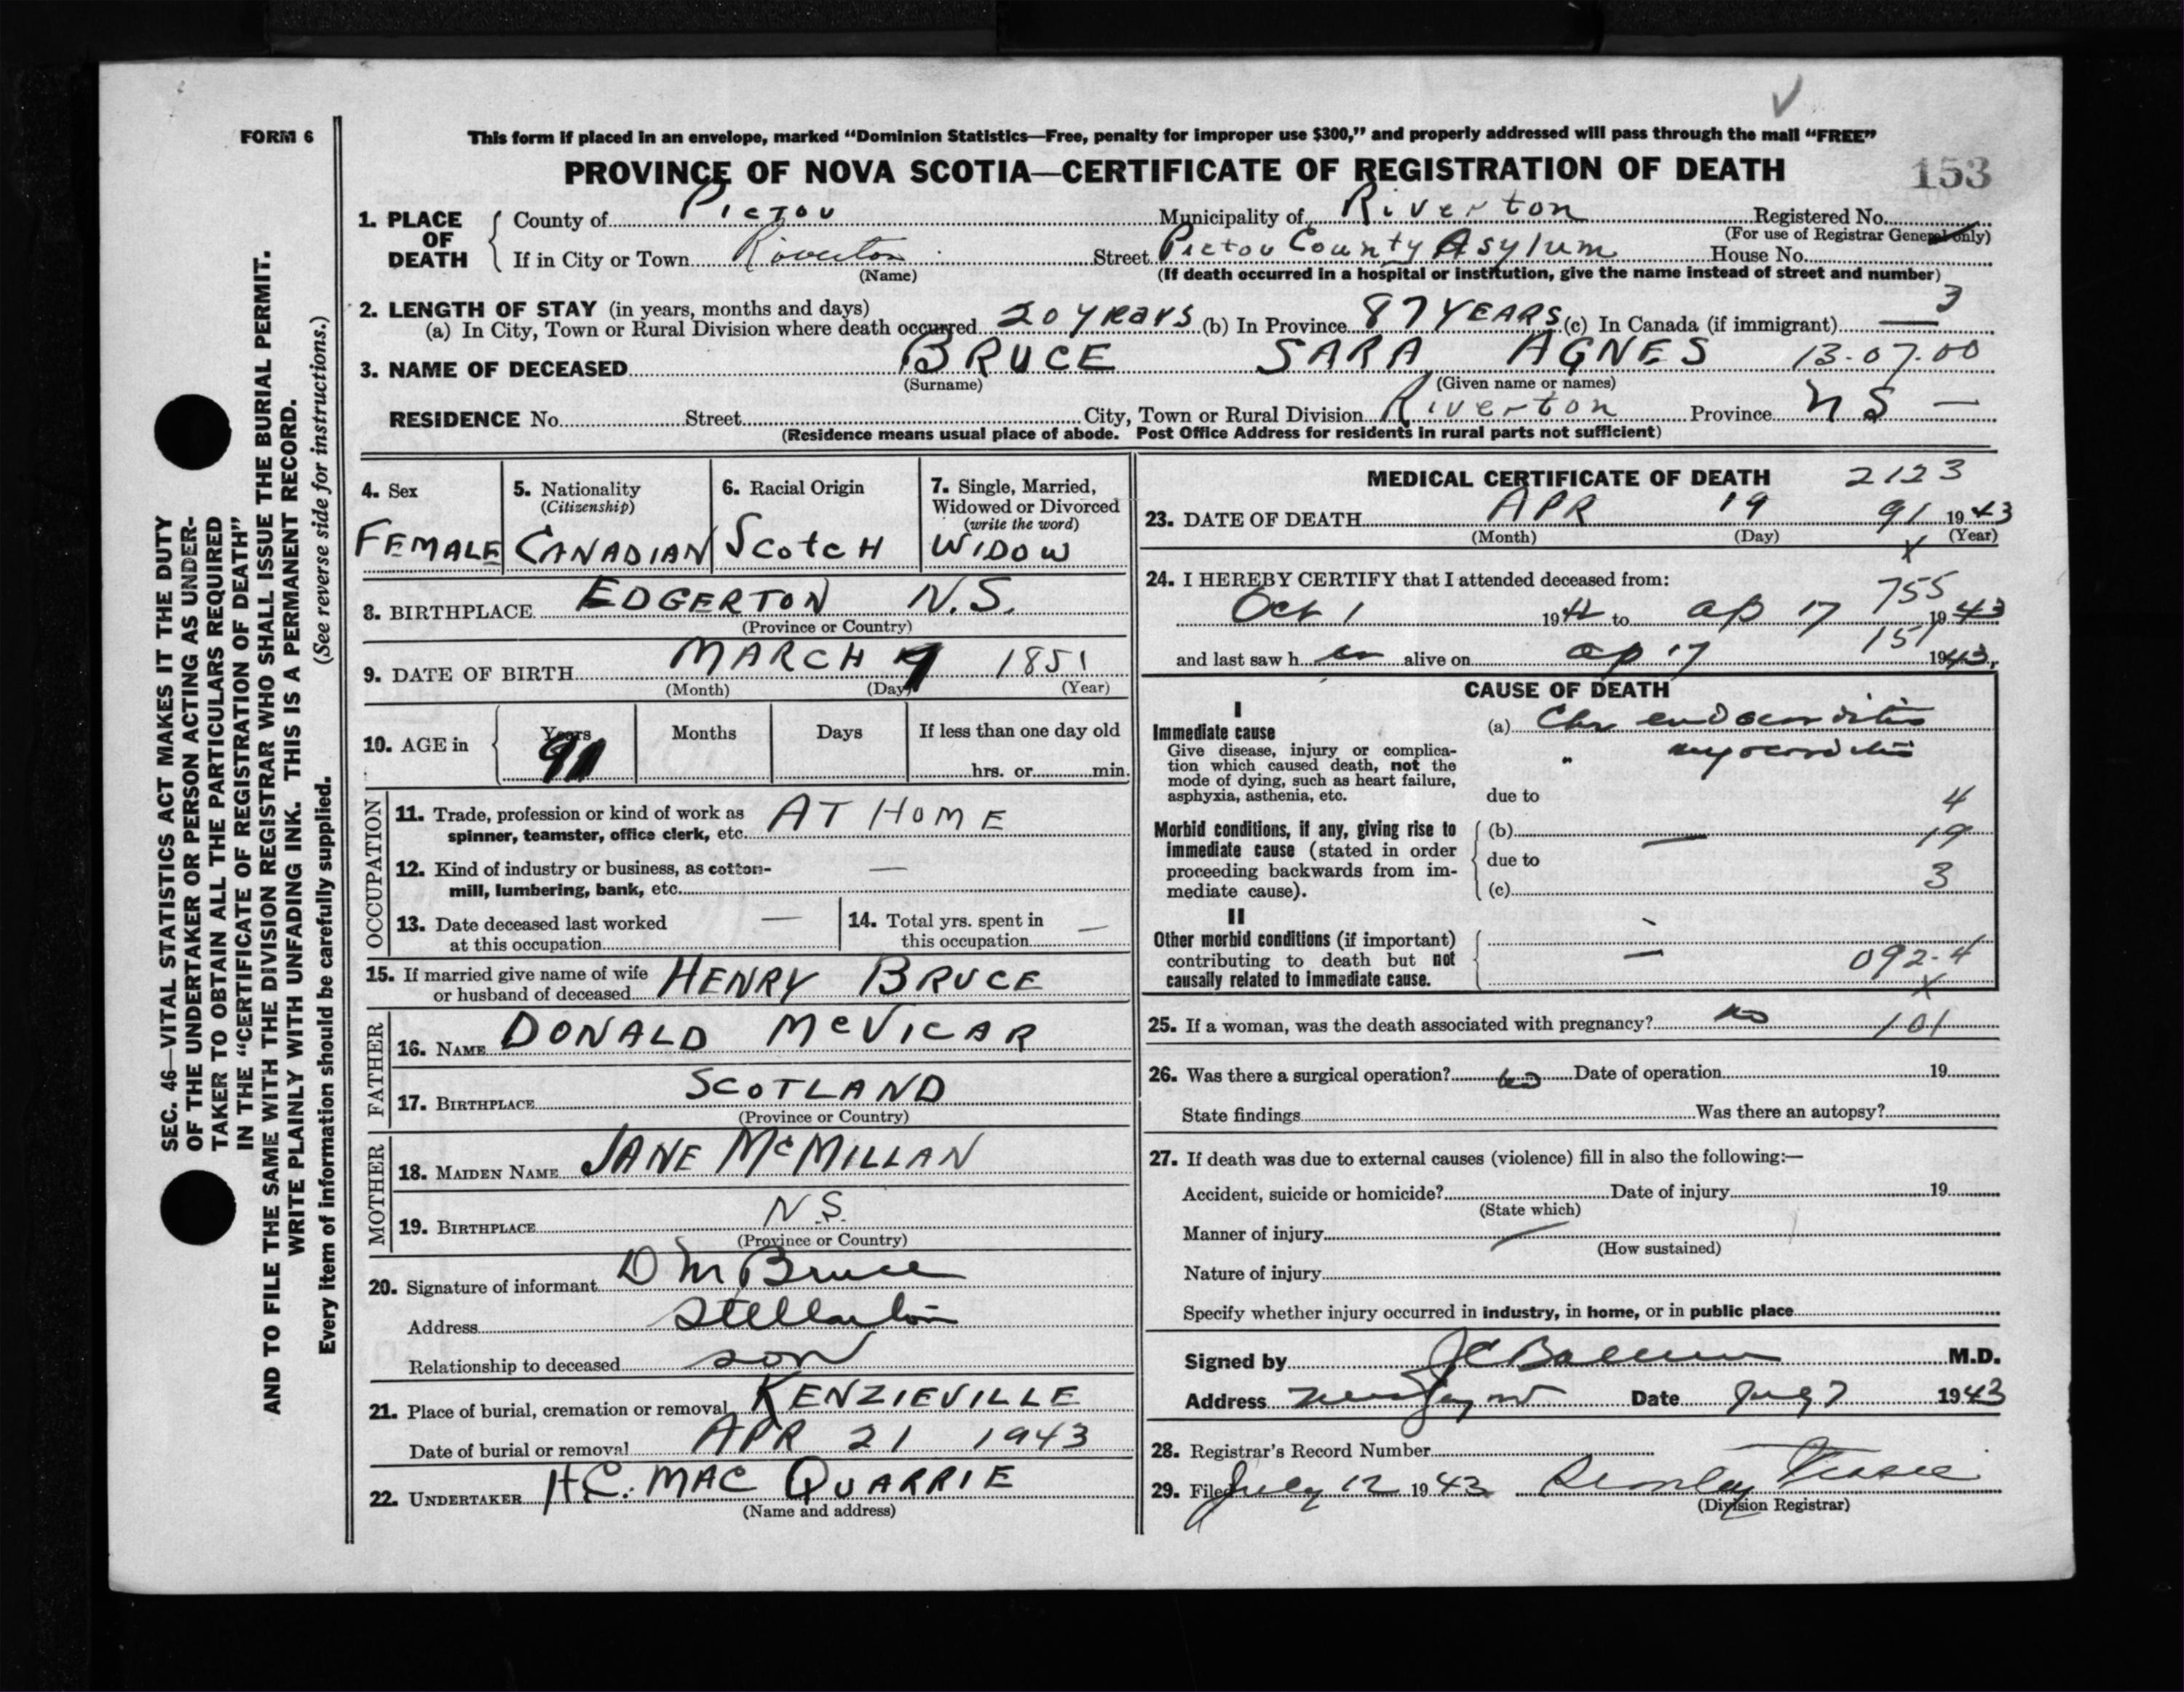 FORM 6
This form if placed in an envelope, marked “Dominion Statistics—Free, penalty for improper use $300,” and properly addressed will pass through the mail “FREE”
PROVINCE OF NOVA SCOTIA—CERTIFICATE OF REGISTRATION OF DEATH
153
1. PLACE OF DEATH
County of PICTOU Municipality of Riverton Registered No.
(For use of Registrar General only)
If in City or Town Riverton Street Pictou County Asylum House No.
(Name) (If death occurred in a hospital or institution, give the name instead of street and number)
2. LENGTH OF STAY (in years, months and days) 3
(a) In City, Town or Rural Division where death occurred 20 YEARS (b) In Province 87 YEARS (c) In Canada (if immigrant) —
3. NAME OF DECEASED BRUCE SARA AGNES 13-07-00
(Surname) (Given name or names)
RESIDENCE No. Street City, Town or Rural Division Riverton Province NS —
(Residence means usual place of abode. Post Office Address for residents in rural parts not sufficient)
4. Sex
FEMALE
5. Nationality
(Citizenship)
CANADIAN
6. Racial Origin
SCOTCH
7. Single, Married,
Widowed or Divorced
(write the word)
WIDOW
8. BIRTHPLACE EDGERTON N.S.
(Province or Country)
9. DATE OF BIRTH MARCH 1851
(Month) (Day) (Year)
10. AGE in
Years Months Days If less than one day old
91 hrs. or min.
OCCUPATION
11. Trade, profession or kind of work as
spinner, teamster, office clerk, etc. AT HOME
12. Kind of industry or business, as cotton-
mill, lumbering, bank, etc. —
13. Date deceased last worked
at this occupation —
14. Total yrs. spent in
this occupation —
15. If married give name of wife
or husband of deceased HENRY BRUCE
FATHER
16. NAME DONALD McVICAR
17. BIRTHPLACE SCOTLAND
(Province or Country)
MOTHER
18. MAIDEN NAME JANE McMILLAN
19. BIRTHPLACE N.S.
(Province or Country)
20. Signature of informant D M Bruce
Address Stellarton
Relationship to deceased son
21. Place of burial, cremation or removal KENZIEVILLE
Date of burial or removal APR 21 1943
22. UNDERTAKER H.C. MAC QUARRIE
(Name and address)
MEDICAL CERTIFICATE OF DEATH 2123
23. DATE OF DEATH APR 19 91 1943
(Month) (Day) X (Year)
24. I HEREBY CERTIFY that I attended deceased from: 755
Oct 1 19 to ap 17 1943
151
and last saw h er alive on ap 17 1943,
CAUSE OF DEATH
I
Immediate cause
Give disease, injury or complica-
tion which caused death, not the
mode of dying, such as heart failure,
asphyxia, asthenia, etc.
(a) Chr endocarditis
" myocarditis
due to 4
Morbid conditions, if any, giving rise to
immediate cause (stated in order
proceeding backwards from im-
mediate cause).
(b) — 19
due to
(c) 3
II
Other morbid conditions (if important)
contributing to death but not
causally related to immediate cause.
— 092-4
X
25. If a woman, was the death associated with pregnancy? no 101
26. Was there a surgical operation? no Date of operation 19
State findings Was there an autopsy?
27. If death was due to external causes (violence) fill in also the following:—
Accident, suicide or homicide? Date of injury 19
(State which)
Manner of injury
(How sustained)
Nature of injury
Specify whether injury occurred in industry, in home, or in public place
Signed by M.D.
Address Date July 7 1943
28. Registrar's Record Number
29. Filed July 12 1943
(Division Registrar)
SEC. 46—VITAL STATISTICS ACT MAKES IT THE DUTY
OF THE UNDERTAKER OR PERSON ACTING AS UNDER-
TAKER TO OBTAIN ALL THE PARTICULARS REQUIRED
IN THE “CERTIFICATE OF REGISTRATION OF DEATH”
AND TO FILE THE SAME WITH THE DIVISION REGISTRAR WHO SHALL ISSUE THE BURIAL PERMIT.
WRITE PLAINLY WITH UNFADING INK. THIS IS A PERMANENT RECORD.
Every item of information should be carefully supplied. (See reverse side for instructions.)